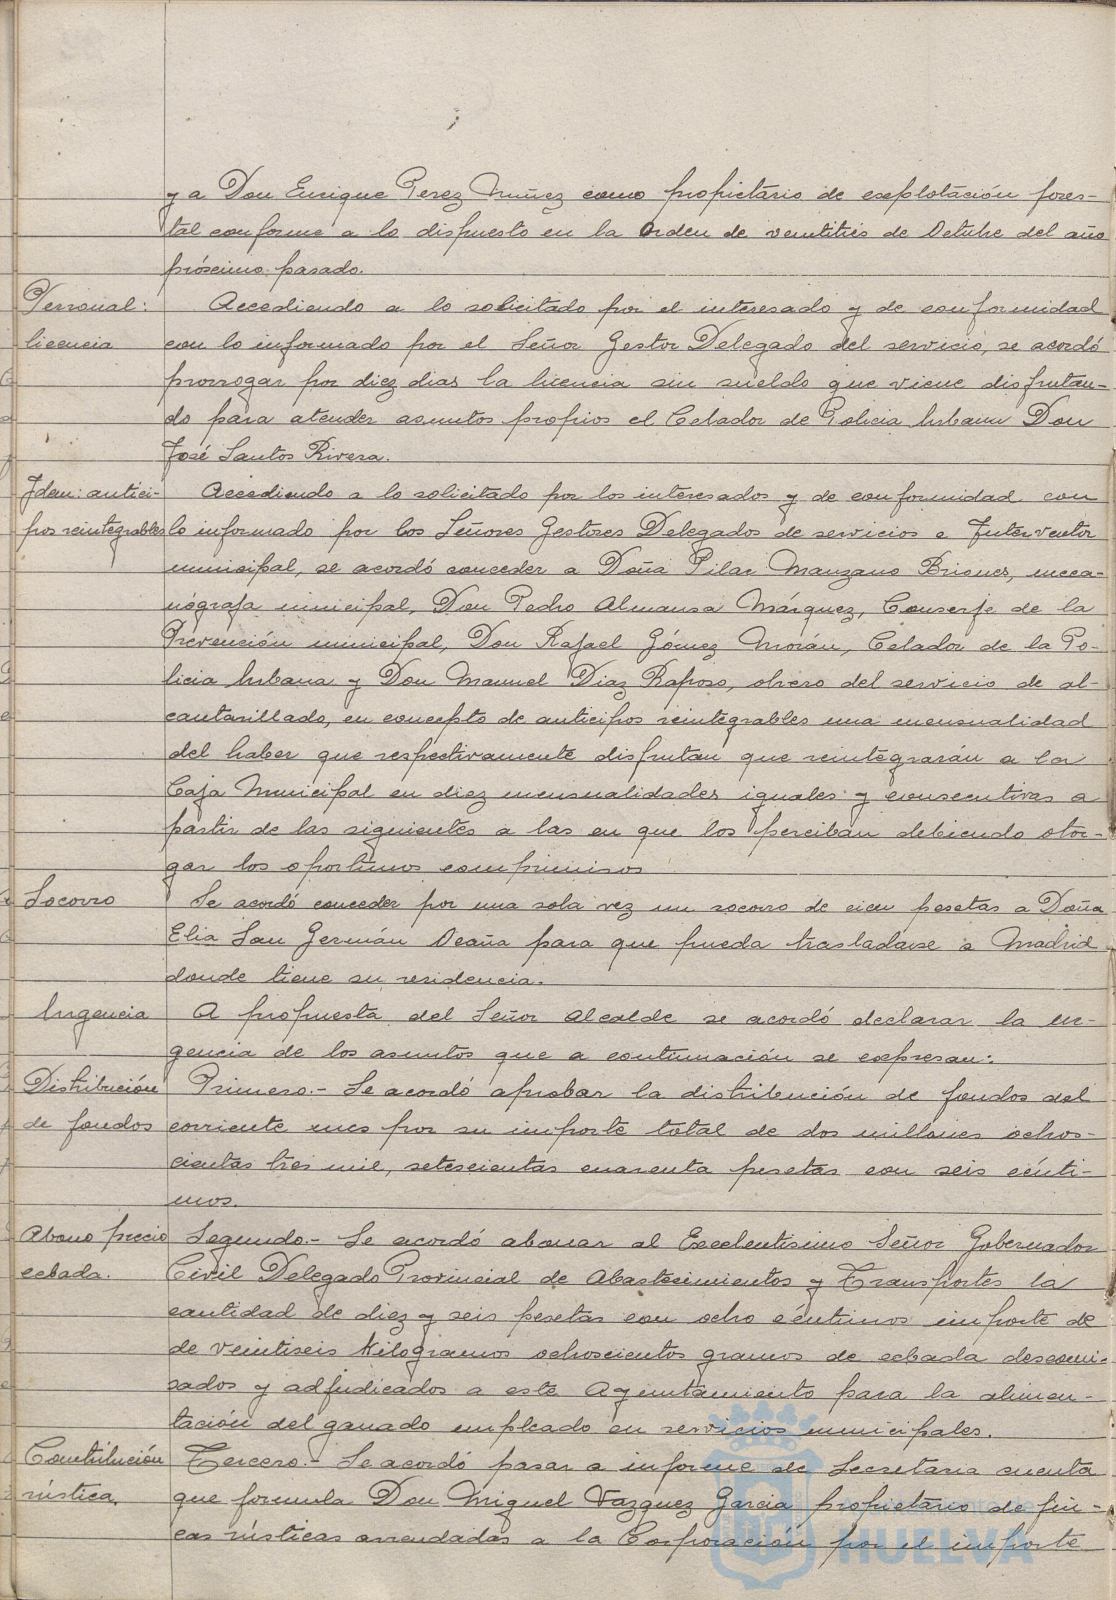 y a Don Enrique Perez Núñez como propietario de explotación fores-
tal conforme a lo dispuesto en la Orden de veintitrés de Octubre del año
próximo pasado.
Personal: Accediendo a lo solicitado por el interesado y de conformidad
licencia con lo informado por el Señor Gestor Delegado del servicio, se acordó
prorrogar por diez dias la licencia sin sueldo que viene disfrutan-
do para atender asuntos propios el Celador de Policia Urbana Don
José Santos Rivera.
Idem: antici- Accediendo a lo solicitado por los interesados y de conformidad con
pos reintegrables lo informado por los Señores Gestores Delegados de servicios e Interventor
municipal, se acordó conceder a Doña Pilar Manzano Briones, meca-
nógrafa municipal, Don Pedro Almansa Márquez, Conserje de la
Prevención municipal, Don Rafael Gómez Morán, Celador de la Po-
licia Urbana y Don Manuel Diaz Raposo, obrero del servicio de al-
cantarillado, en concepto de anticipos reintegrables una mensualidad
del haber que respectivamente disfrutan que reintegrarán a la
Caja Municipal en diez mensualidades iguales y consecutivas a
partir de las siguientes a las en que los perciban debiendo otor-
gar los oportunos compromisos
Socorro Se acordó conceder por una sola vez un socorro de cien pesetas a Doña
Elia San Germán Ocaña para que pueda trasladarse a Madrid
donde tiene su residencia.
Urgencia A propuesta del Señor Alcalde se acordó declarar la ur-
gencia de los asuntos que a continuación se expresan:
Distribución Primero.- Se acordó aprobar la distribución de fondos del
de fondos corriente mes por su importe total de dos millones ochos-
cientas tres mil, setescientas cuarenta pesetas con seis cénti-
mos.
Abono precio Segundo.- Se acordó abonar al Excelentisimo Señor Gobernador
cebada. Civil Delegado Provincial de Abastecimientos y Transportes la
cantidad de diez y seis pesetas con ocho céntimos importe de
de veintiseis kilogramos ochoscientos gramos de cebada descomi-
sados y adjudicados a este Ayuntamiento para la alimen-
tación del ganado empleado en servicios municipales.
Contribución Tercero.- Se acordó pasar a informe de Secretaria cuenta
rústica. que formula Don Miguel Vazquez Garcia propietario de fin-
cas rústicas arrendadas a la Corporación por el importe
HUELVA